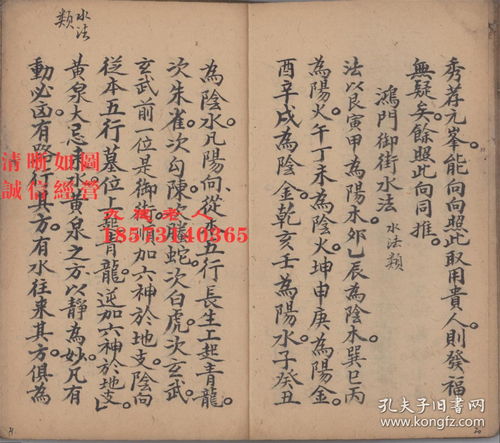 秀荐元峯能向向照此取用貴人則發福
無疑矣餘照此向同推
鴻門御街水法 水法類
法以艮寅甲為陽木夘乙辰為陰木巽巳丙
為陽火午丁未為陰火坤申庚為陽金
酉辛戌為陰金乾亥壬為陽水子癸丑
為陰水凡陽向從本五行長生上起青龍
次朱雀次勾陳次螣蛇次白虎次玄武
玄武前一位是御街順加六神於地支陰向
從本五行墓位上起青龍逆加六神於地支
黃泉大忌水黃泉之方以静為妙凡有
動必凶有路行其方有水往來其方俱為
水法類
清晰如圖
誠信經營
18573140365
孔夫子旧书网
kongfz.com